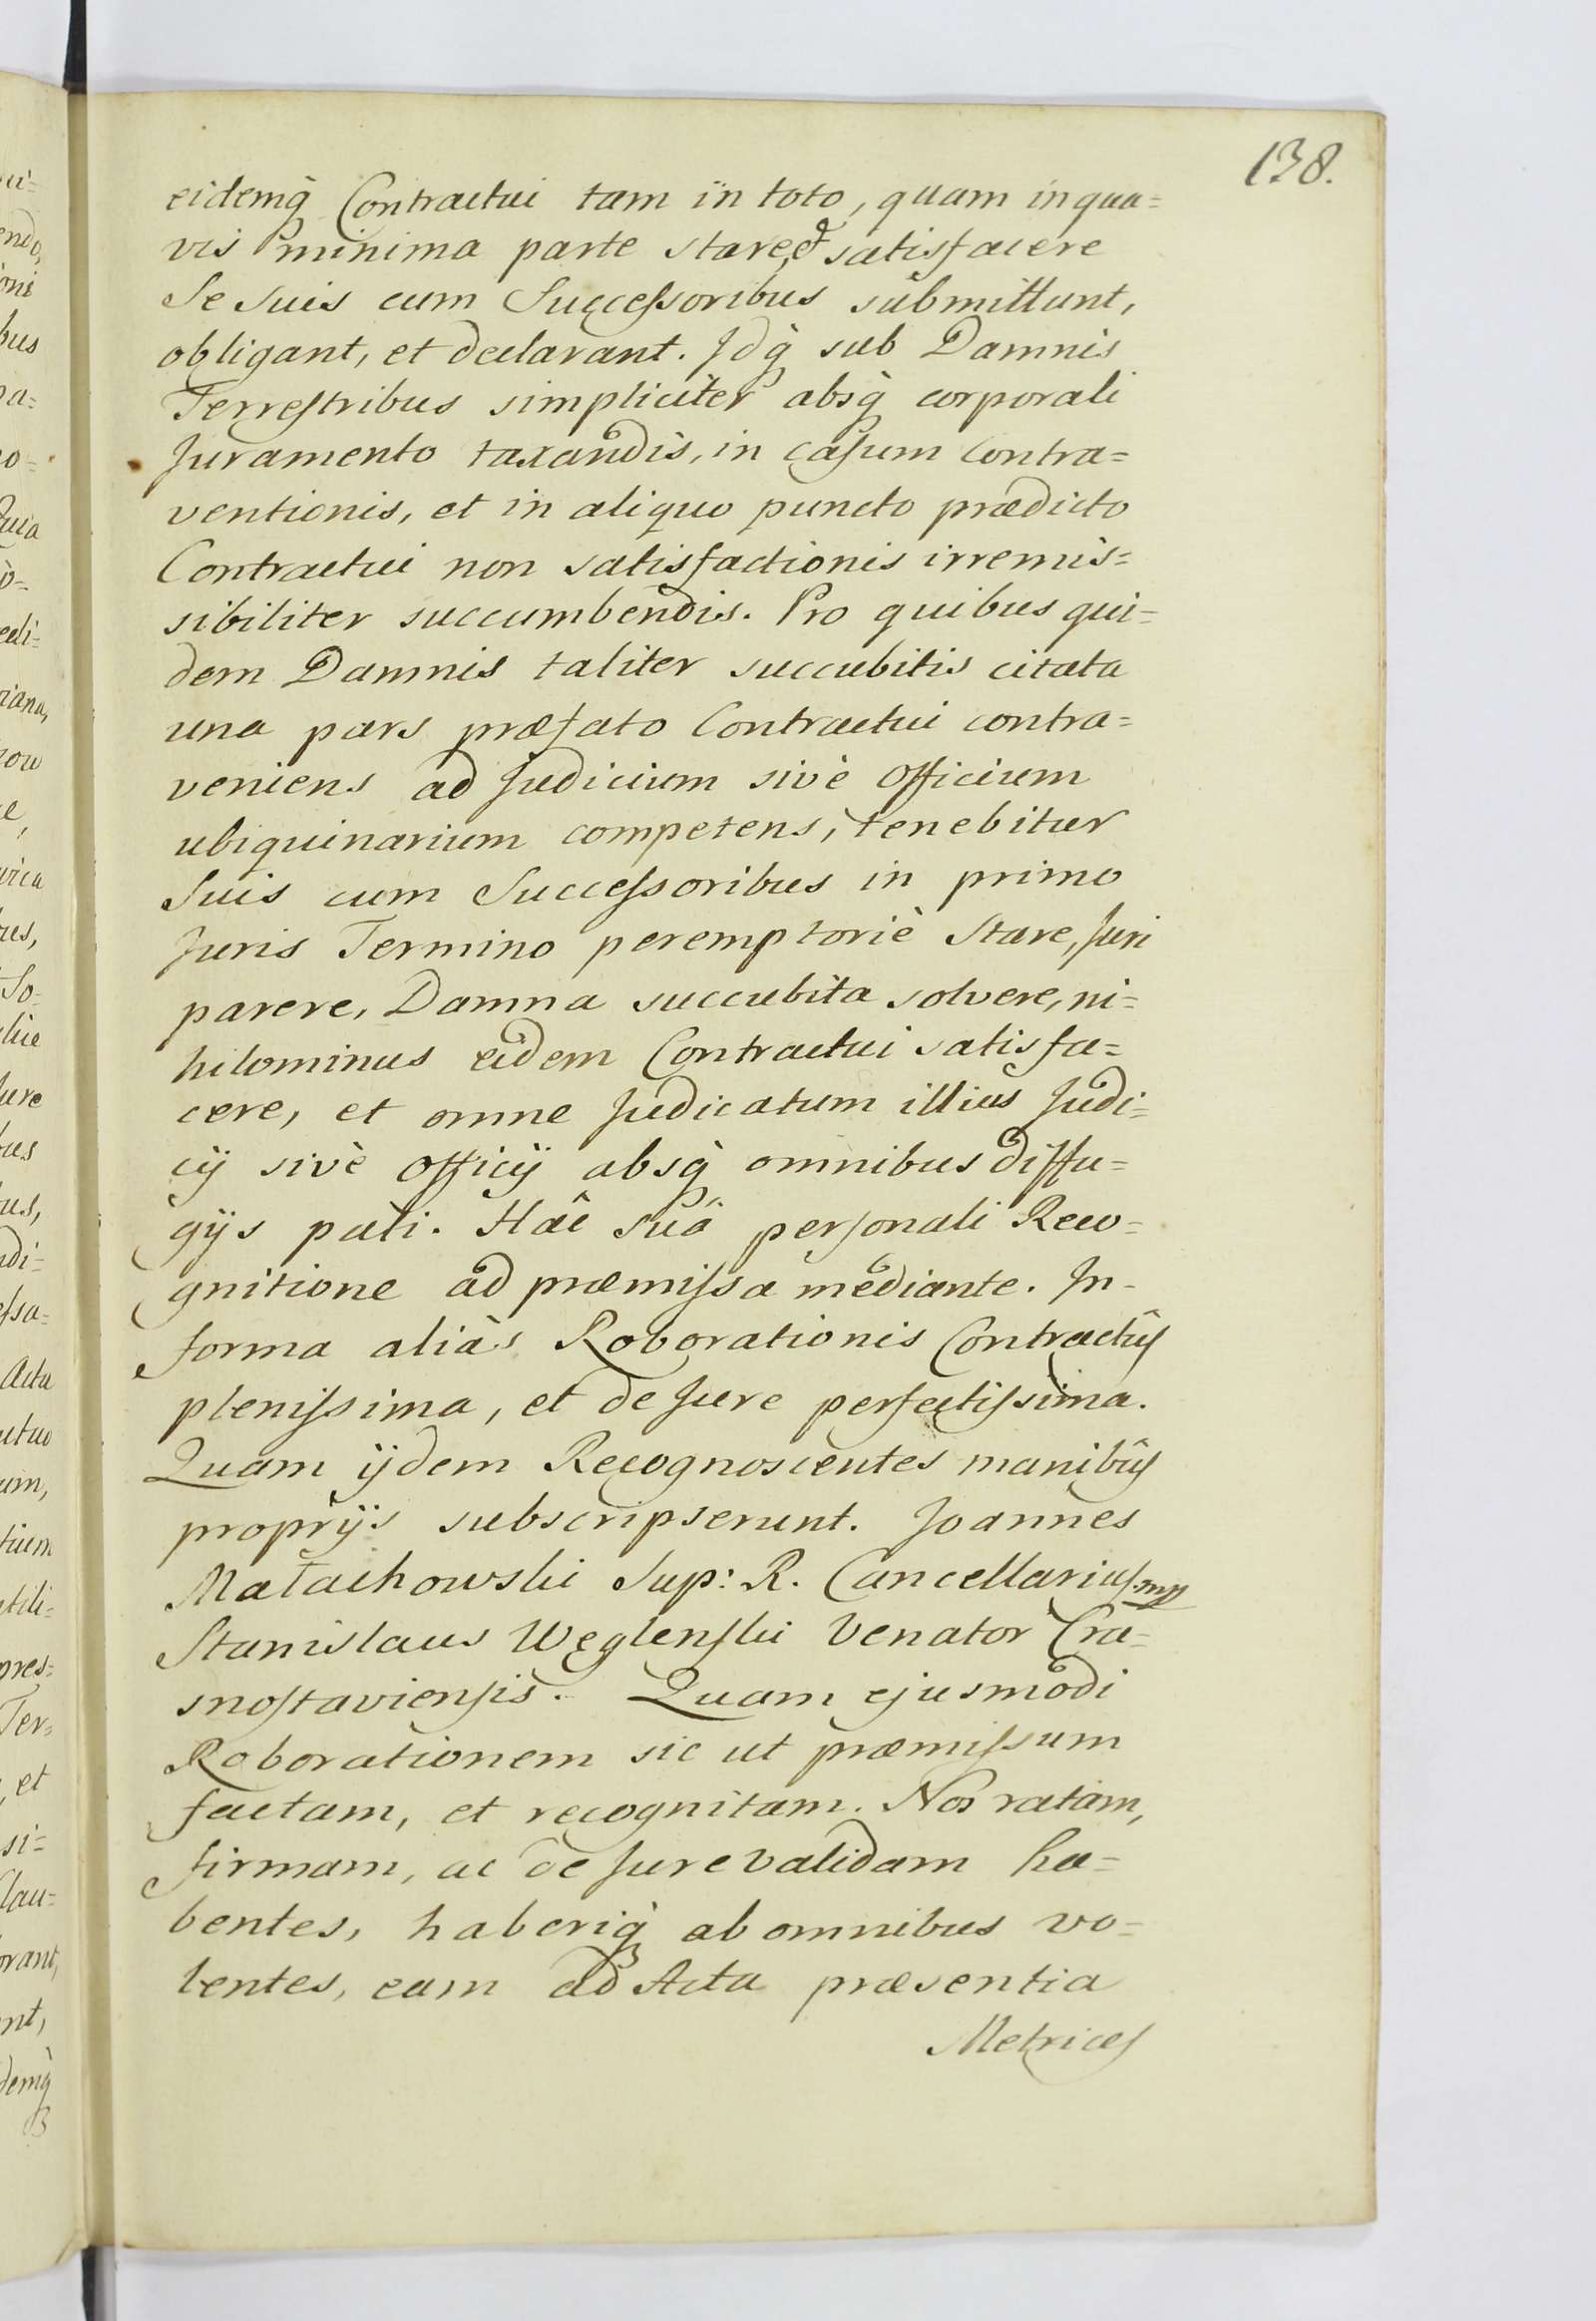 138.
eidemq̀ Contractui tam in toto, quam in qua=
vis minima parte stare, et satisfacere
Se suis cum Successoribus submittunt,
obligant, et declarant. Jdq̀ sub Damnis
Terrestribus simpliciter absq̀ corporali
Juramento taxandis, in casum contra=
ventionis, et in aliquo puncto prædicto
Contractui non satisfactionis irremis=
sibiliter succumbendis. Pro quibus qui=
dem Damnis taliter succubitis citata
una pars præfato Contractui contra=
veniens ad Judicium sivè Officium
ubiquinarium competens, tenebitur
Suis cum Successoribus in primo
Juris Termino peremptoriè Stare, Juri
parere, Damna succubita solvere, ni=
hilominus eidem Contractui satisfa=
cere, et omne Judicatum illius Judi=
cij sivè Officij absq̀ omnibus diffu=
gijs pati. Hâc suâ personali Reco=
gnitione ad præmissa mediante. Jn-
forma aliàs Roborationis Contractûs
plenissima, et de Jure perfectissima.
Quam ijdem Recognoscentes manibus
proprijs subscripserunt. Joannes
Małachowski Sup: R. Cancellarius. mp
Stanislaus Węglenski Venator Cra=
snostaviensis. Quam ejusmodi
Roborationem sic ut præmissum
factam, et recognitam. Nos ratam,
firmam, ac de Jure validam ha=
bentes, haberiq̀ ab omnibus vo=
lentes, eam ad Acta præsentia
Metrices
ui=
endo,
oni
bus
pa=
o=
Quia
ò=
edi=
riana,
how
ce,
urica
So=
Jure
bus
ndi=
essa=
Acta
uctuo
um,
tium
tili=
pres=
Ter=
, et
si=
Clau=
orant,
nt,
demq̀